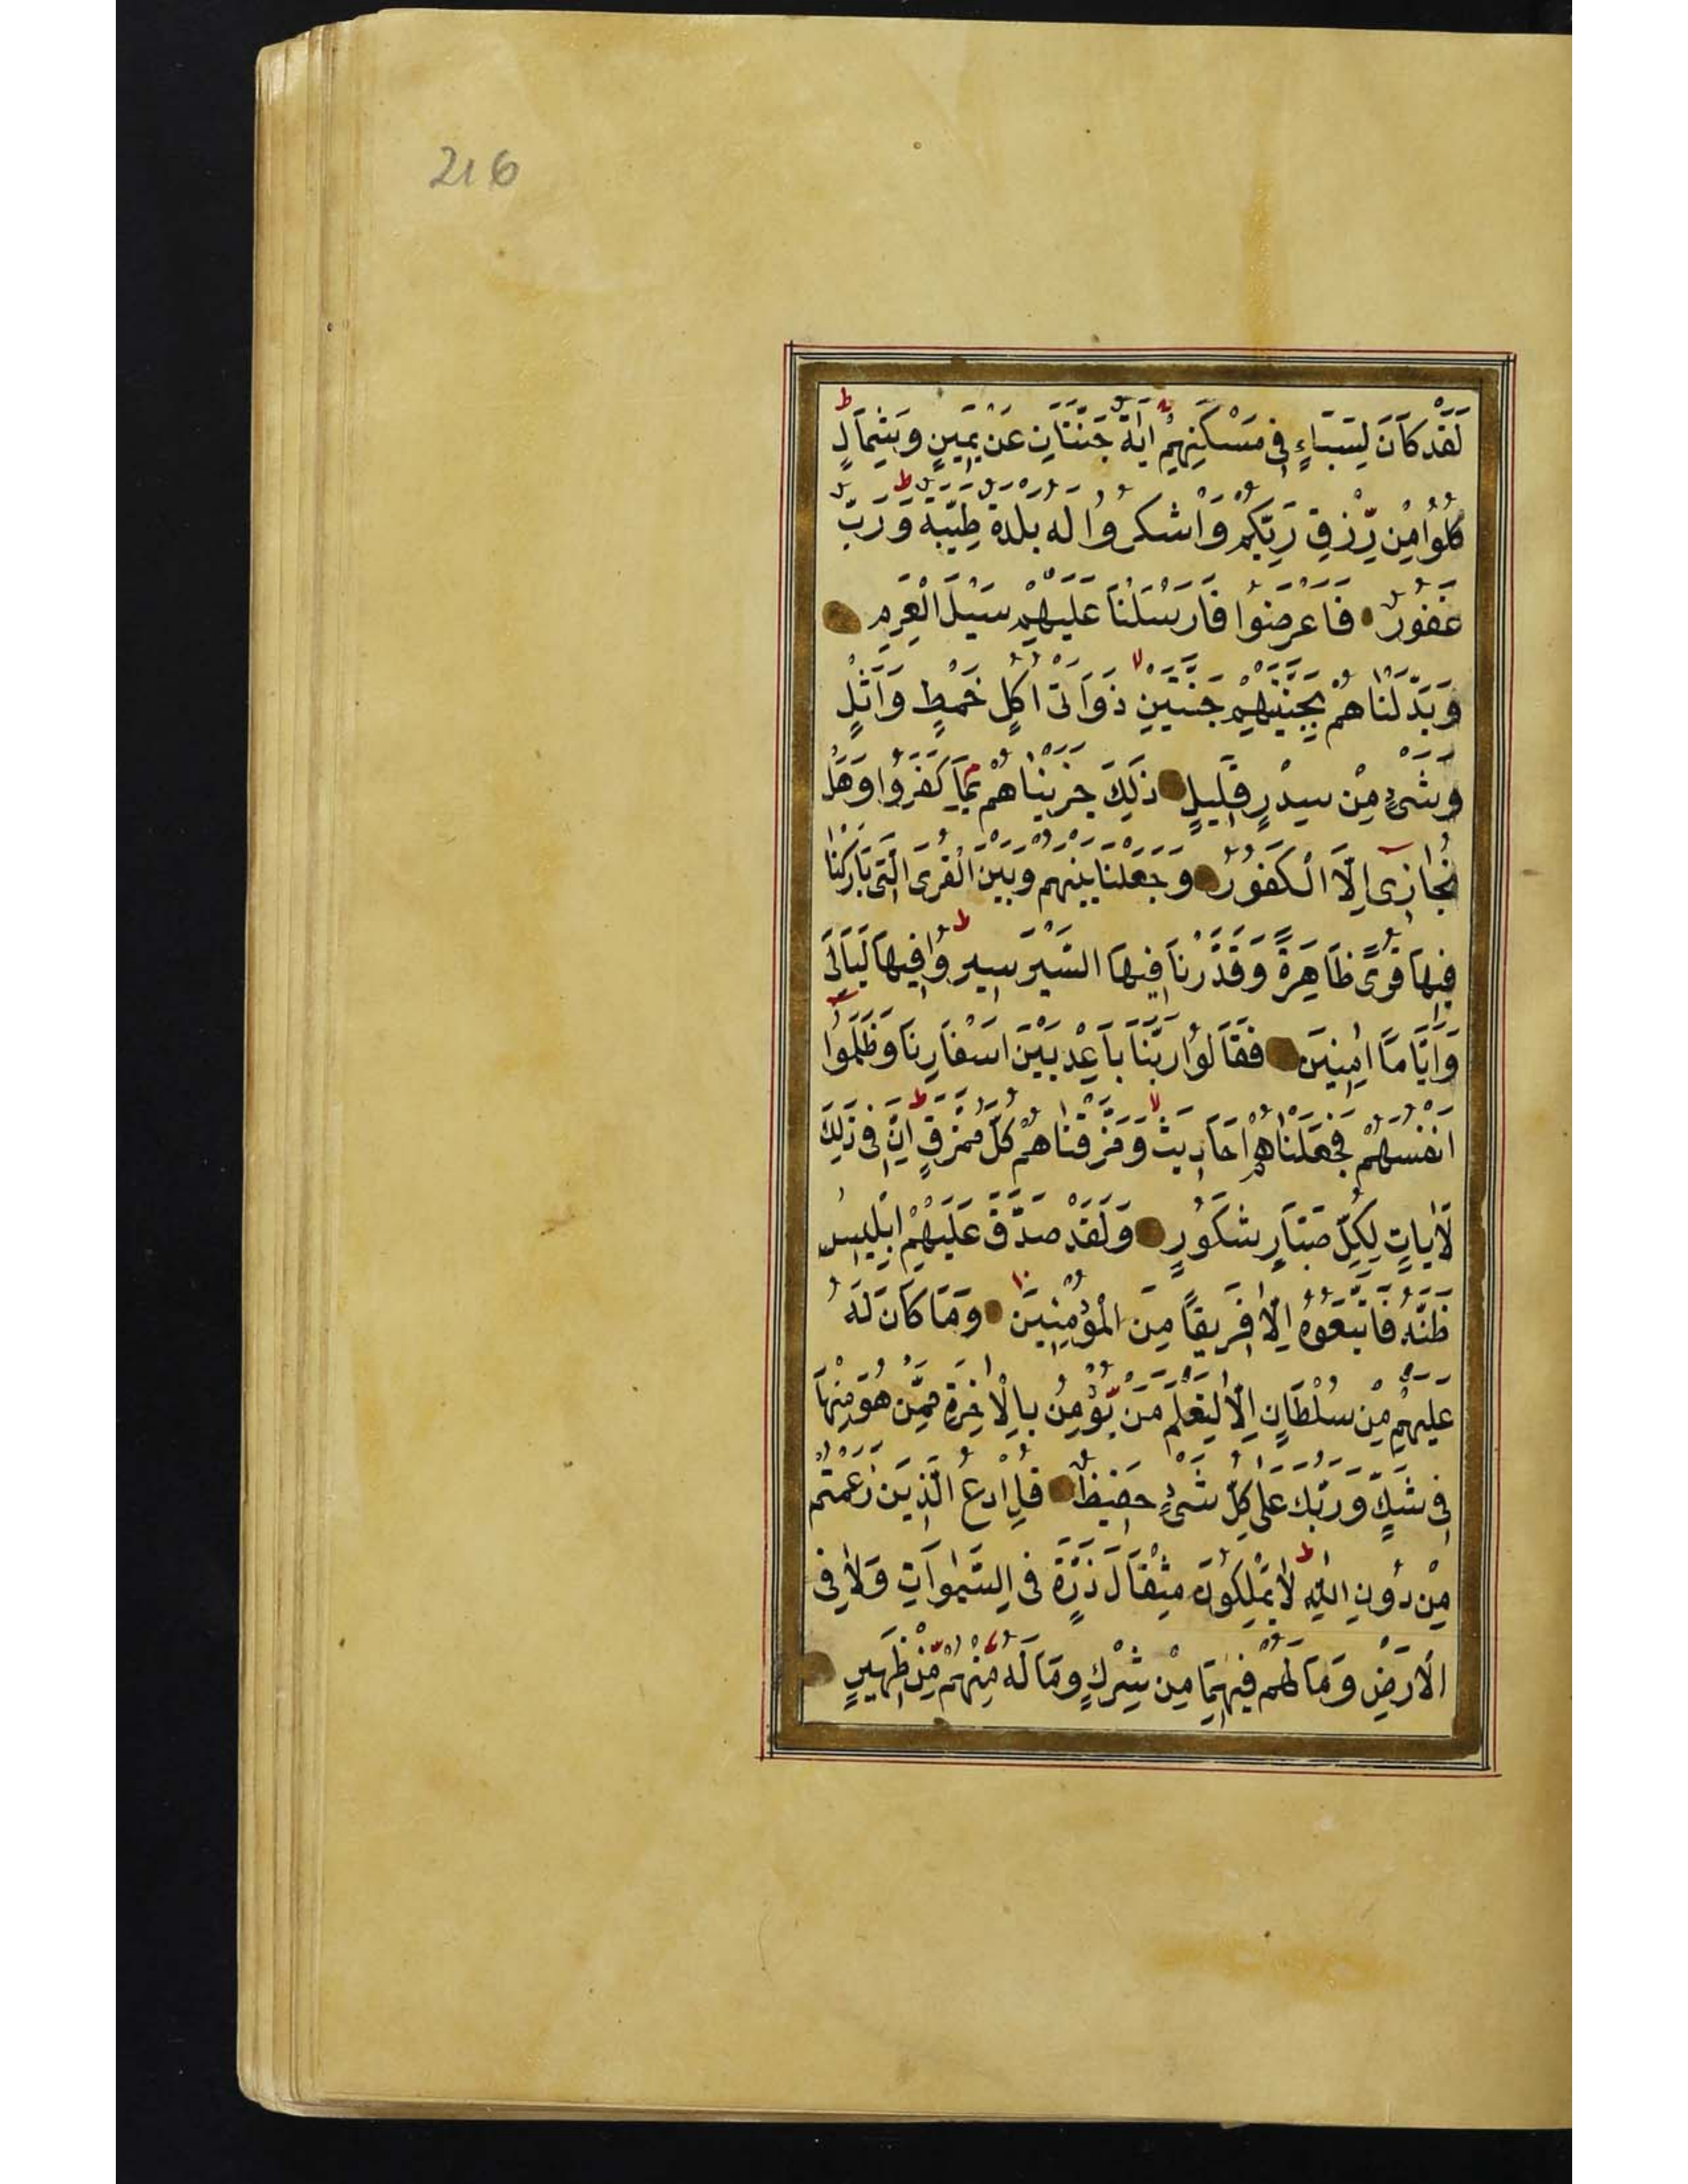 216
لَقَدْ كَانَ لِسَبَاءٍ فِى مَسْكَنِهِمْ اٰيَةٌ جَنَّتَانِ عَنْ يَمِينٍ وَشِمَالٍ ط
كُلُوا مِنْ رِّزْقِ رَبِّكُمْ وَاشْكُرُوا لَهُ بَلْدَةٌ طَيِّبَةٌ ط وَرَبٌّ
غَفُورٌ فَاَعْرَضُوا فَاَرْسَلْنَا عَلَيْهِمْ سَيْلَ الْعَرِمِ
وَبَدَّلْنَاهُمْ بِجَنَّتَيْهِمْ جَنَّتَيْنِ لا ذَوَاتَىْ اُكُلٍ خَمْطٍ وَاَثْلٍ
وَشَىْءٍ مِنْ سِدْرٍ قَلِيلٍ ذٰلِكَ جَزَيْنَاهُمْ بِمَا كَفَرُوا وَهَلْ
نُجَازِى اِلَّا الْكَفُورَ وَجَعَلْنَا بَيْنَهُمْ وَبَيْنَ الْقُرَى الَّتِى بَارَكْنَا
فِيهَا قُرًى ظَاهِرَةً وَقَدَّرْنَا فِيهَا السَّيْرَ سِيرُوا ط فِيهَا لَيَالِىَ
وَاَيَّامًا اٰمِنِينَ فَقَالُوا رَبَّنَا بَاعِدْ بَيْنَ اَسْفَارِنَا وَظَلَمُوا
اَنْفُسَهُمْ فَجَعَلْنَاهُمْ اَحَادِيثَ لا وَمَزَّقْنَاهُمْ كُلَّ مُمَزَّقٍ ط اِنَّ فِى ذٰلِكَ
لَاٰيَاتٍ لِكُلِّ صَبَّارٍ شَكُورٍ وَلَقَدْ صَدَّقَ عَلَيْهِمْ اِبْلِيسُ
ظَنَّهُ فَاتَّبَعُوهُ اِلَّا فَرِيقًا مِنَ الْمُؤْمِنِينَ وَمَا كَانَ لَهُ
عَلَيْهِمْ مِنْ سُلْطَانٍ اِلَّا لِنَعْلَمَ مَنْ يُؤْمِنُ بِالْاٰخِرَةِ مِمَّنْ هُوَ مِنْهَا
فِى شَكٍّ وَرَبُّكَ عَلٰى كُلِّ شَىْءٍ حَفِيظٌ قُلِ ادْعُ الَّذِينَ زَعَمْتُمْ
مِنْ دُونِ اللّٰهِ ط لَا يَمْلِكُونَ مِثْقَالَ ذَرَّةٍ فِى السَّمٰوَاتِ وَلَا فِى
الْاَرْضِ وَمَا لَهُمْ فِيهِمَا مِنْ شِرْكٍ وَمَا لَهُ مِنْهُمْ مِّنْ ظَهِيرٍ